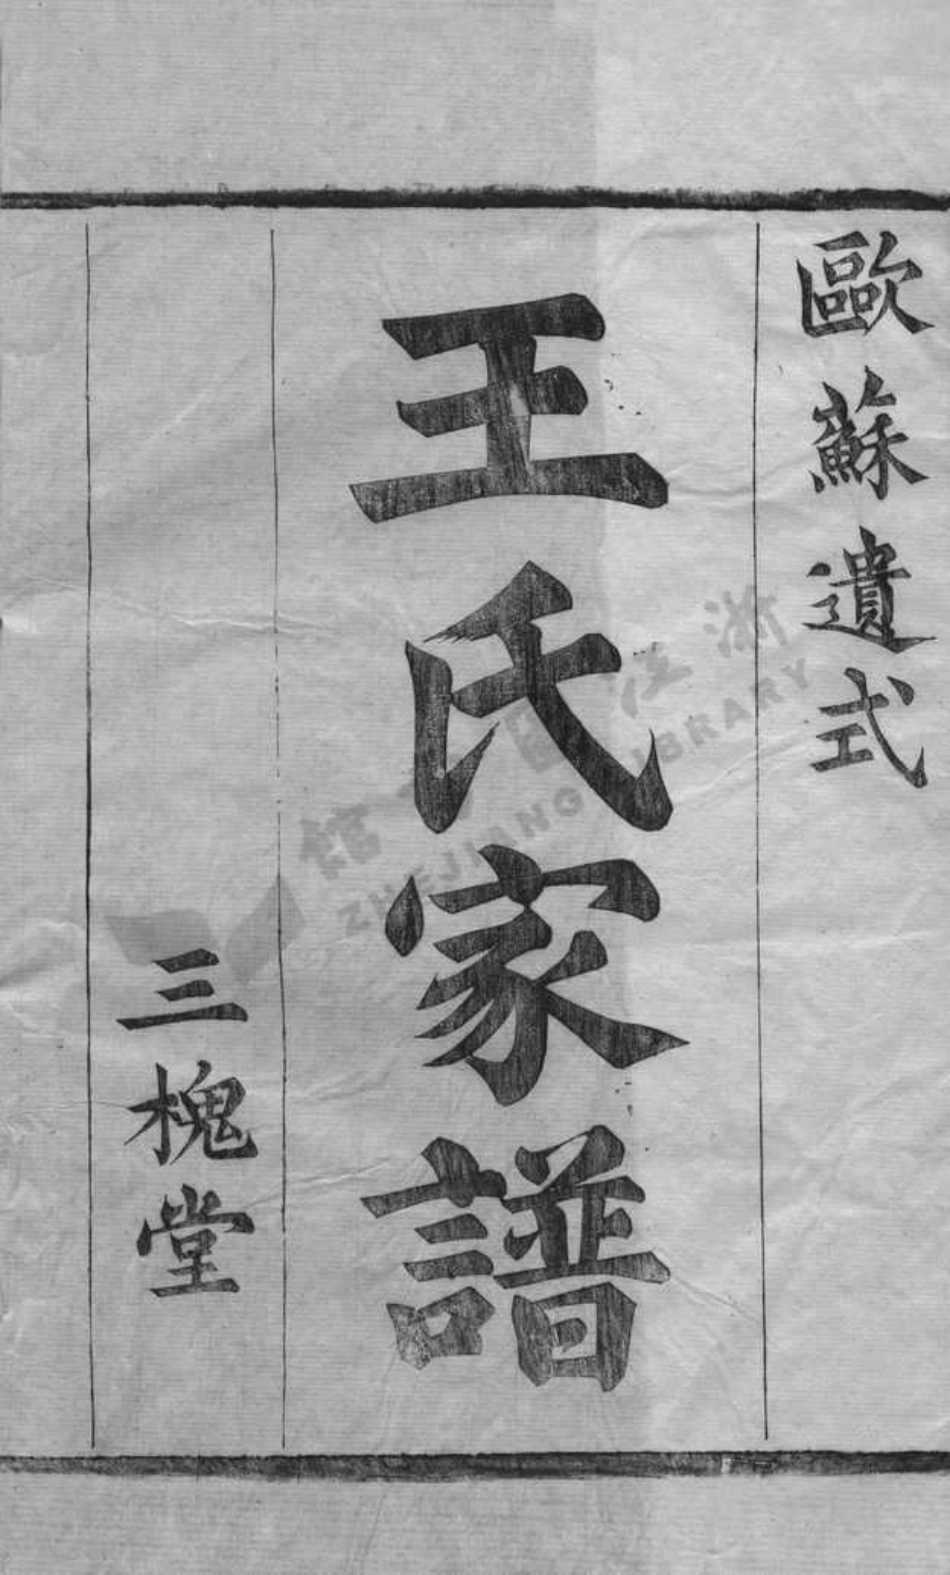 歐蘇遺式
王氏家譜
三槐堂
浙江圖書館
ZHEJIANG LIBRARY